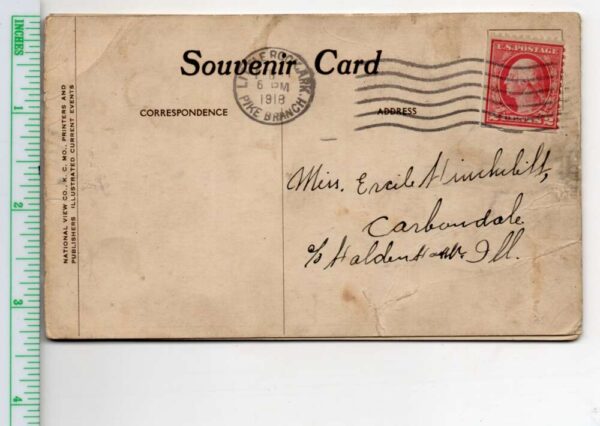 Souvenir Card
CORRESPONDENCE
ADDRESS
LITTLE ROCK, ARK.
6 PM
1918
PIKE BRANCH
U.S. POSTAGE
2 CENTS 2
NATIONAL VIEW CO., K. C. MO., PRINTERS AND
PUBLISHERS ILLUSTRATED CURRENT EVENTS
Miss. Ercile
Carbondale
c/o Ill.
INCHES
1
2
3
4